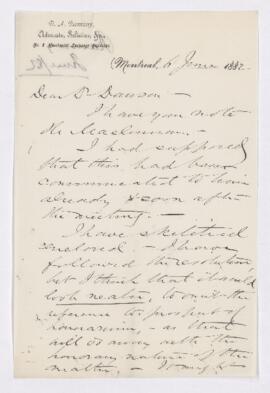 Advocate, Solicitor, &c.
Montreal, 6 June 1882
Dear Dr Dawson —
I have your note
re
I had supposed
that this had been
communicated to him
already & soon after
the meeting. —
I have sketched
enclosed. — I have
followed the resolution
but I think that it would
look neater, to omit the
reference to prospect of
honorarium, — as that
will do away with the
honorary nature of the
matter. — It might